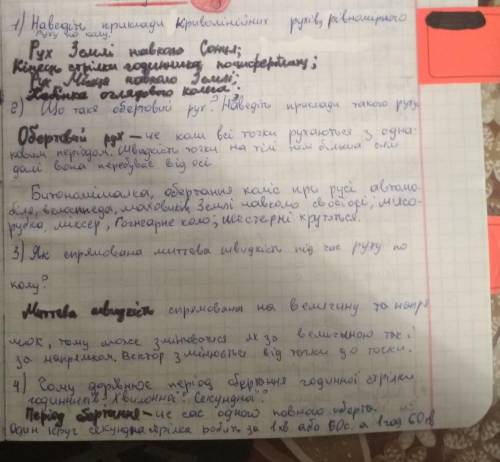 1) Наведіть приклади криволінійних рухів, рівномірного
руху по колу.
Рух Землі навколо Сонця;
Кінець стрілки годинника по циферблату;
Рух Місяця навколо Землі;
Кабінка оглядового колеса.
2) Що таке обертовий рух? Наведіть приклади такого руху
Обертовий рух – це коли всі точки рухаються з одна-
ковим періодом. Швидкість точки на тілі тим більша чим
далі вона перебуває від осі.
обертання коліс при русі автомо-
біля, велосипеда, маховик, Землі навколо своєї осі, мясо-
рубка, миксер, коло, шестерні крутяться.
3) Як спрямована миттєва швидкість під час руху по
колу?
Миттєва швидкість спрямована на величину та напря
мок, тому може змінюватися як за величиною так і
за напрямком. Вектор змінюється від точки до точки.
4) Чому дорівнює період обертання годинної стрілки
годинника? Хвилинної? Секундної?
Період обертання – це час одного повного оберта.
Один круг секундна стрілка робить за 1 хв або 60с. а 1 год 60 хв